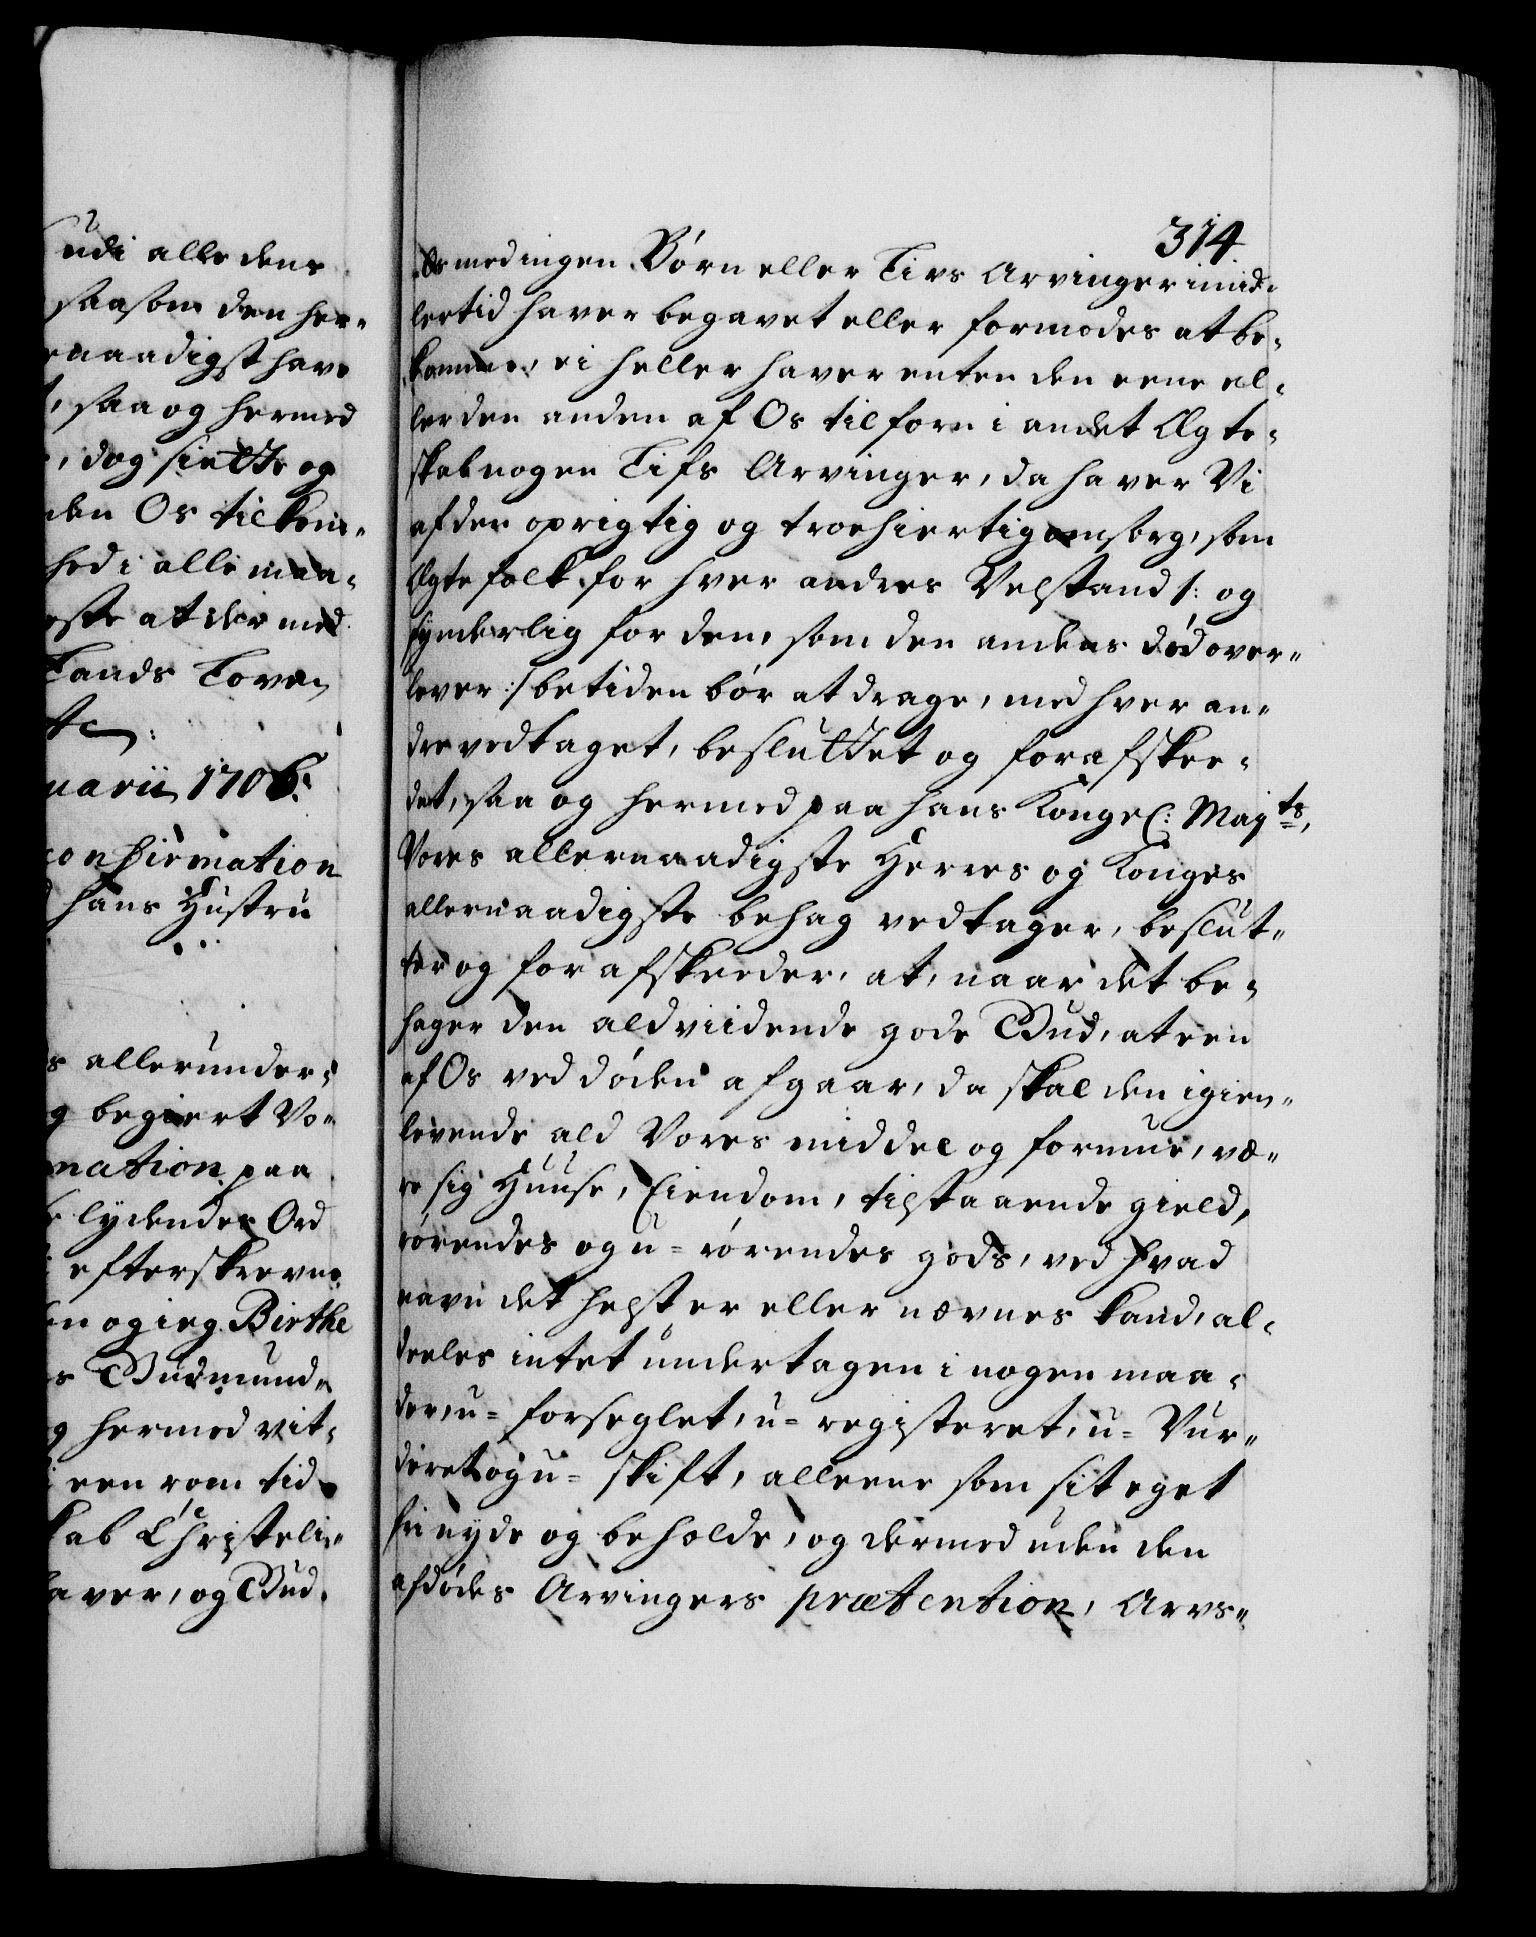 udi alle dens
saasom den her-
naadigst have
, saa og hermed
, dog sielffe og
den Os tilkom-
hed i alle maa-
este at der med
Lands Loven
uarii 1706.
confirmation
hans Hustru
s allerunder-
g begiert Vo-
mation paa
lydendes Ord
efterskrevne
en og ieg Birthe
s Gudmund-
g hermed vit-
een rom tid
kab Christeli-
aver, og Gud
314
Os med ingen Børn eller Livs Arvinger imid-
lertid haver begavet eller formodes at be-
komme, ei heller haver enten den eene el-
ler den anden af Os tilforn i andet Ægte-
skab nogen Lifs Arvinger, da haver Vi
af den oprigtig og troehiertig omsorg, som
Ægtefolk for hver andres Velstand /: og
synderlig for den, som den andens død over-
lever :/ betiden bør at drage, med hver an-
dre vedtaget, besluttet og forafskee-
det, saa og hermed paa hans Kongel: Majts,
Vores allernaadigste Herres og Konges
allernaadigste behag vedtager, beslut-
ter og forafskeeder, at, naar det be-
hager den aldviidende gode Gud, at een
af Os ved døden afgaar, da skal den igien-
levende ald Vores middel og formue, væ-
re sig Huuse, Eiendom, tilstaaende gield,
rørendes og u-rørendes gods, ved hvad
navn det helst er eller nævnes kand, al-
deeles intet undertagen i nogen maa-
der, u-forseglet, u-registeret, u-Vur-
deret og u-skift, alleene som sit eget
frii nyde og beholde, og dermed uden den
afdødes Arvingers prætention, Arvs-